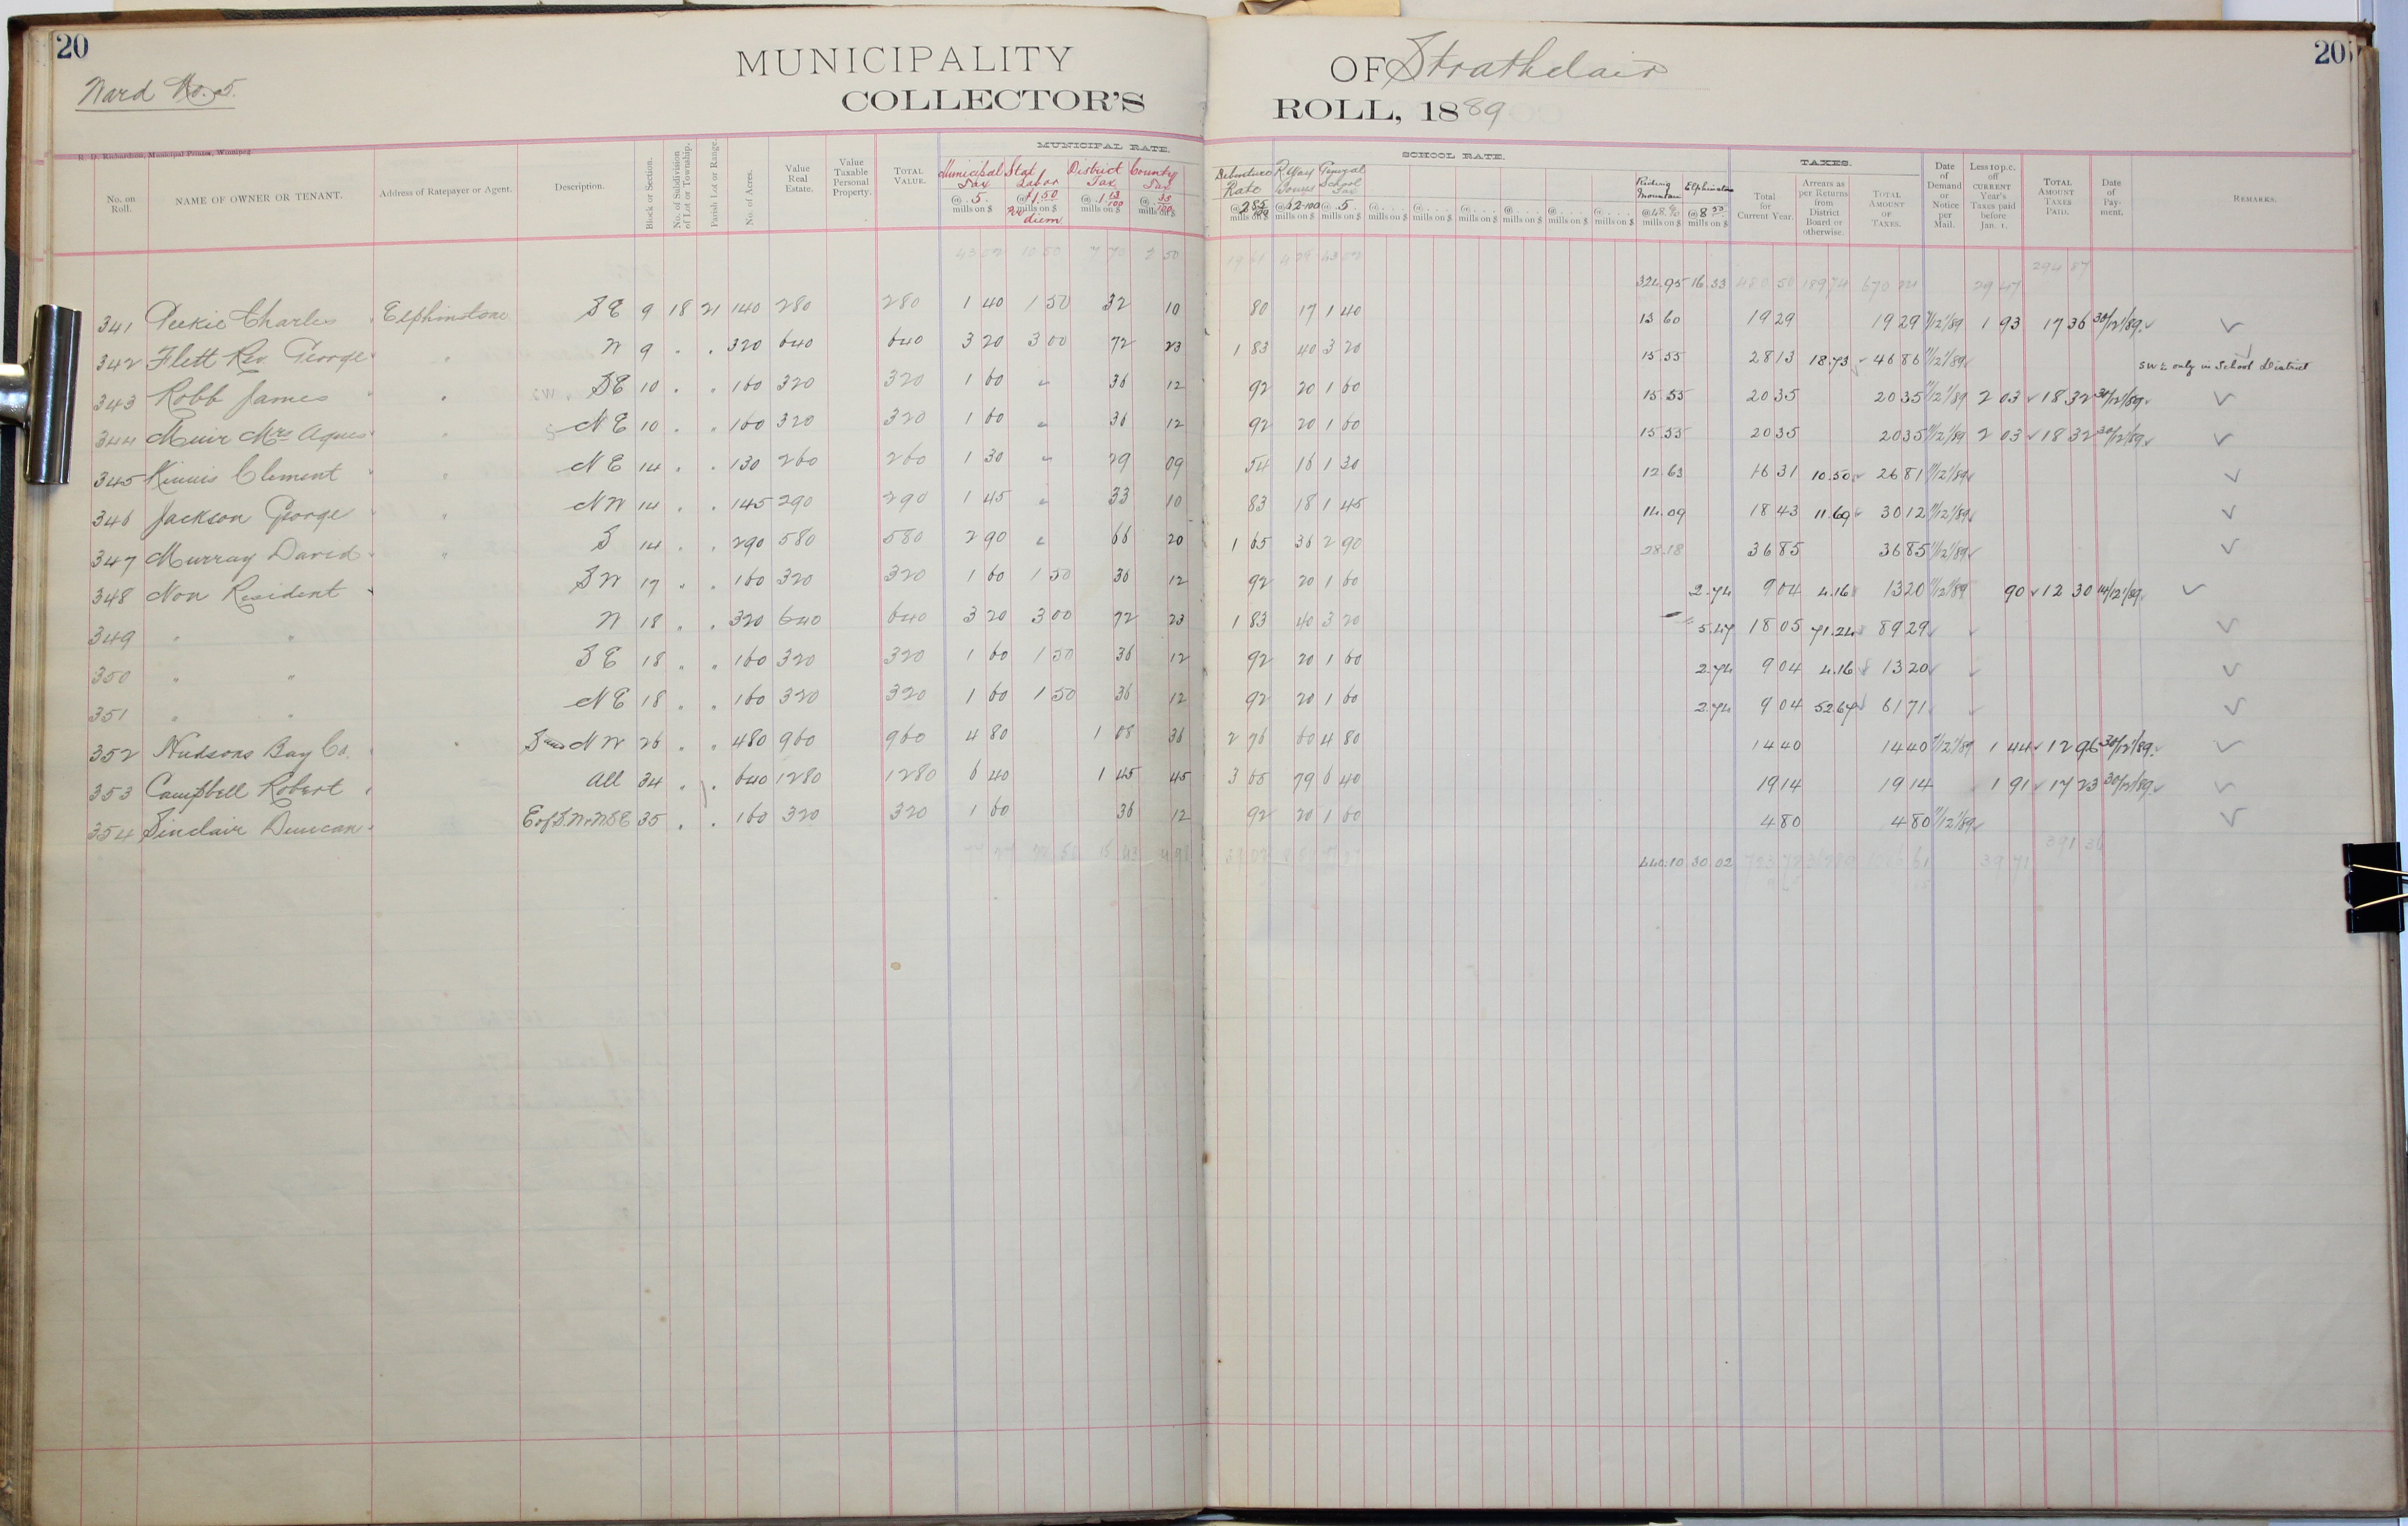 20
20
Ward No. 5.
MUNICIPALITY OF Strathclair
COLLECTOR'S ROLL, 1889
R. D. Richardson, Municipal Printer, Winnipeg.
MUNICIPAL RATE. SCHOOL RATE. TAXES.
No. on Roll. NAME OF OWNER OR TENANT. Address of Ratepayer or Agent. Description. Block or Section. No. of Subdivision of Lot or Township. Parish Lot or Range. No. of Acres. Value Real Estate. Value Taxable Personal Property. TOTAL VALUE. Municipal Tax @ .5. mills on $ Stat Labor @ $1.50 mills on $ Per diem District Tax @ .1 13/100 mills on $ County Tax @ 35/100 mills on $ Debenture Rate @ 2 85/100 mills on $ @ 62-100 mills on $ General School Tax @ .5. mills on $ @ . . . . mills on $ @ . . . . mills on $ @ . . . . mills on $ @ . . . . mills on $ @ . . . . mills on $ @ . . . . mills on $ Riding Mountain @ 48.60 mills on $ Elphinstone @ 8 mills on $ Total for Current Year. Arrears as per Returns from District Board or otherwise. TOTAL AMOUNT OF TAXES. Date of Demand or Notice per Mail. Less 10 p.c. off CURRENT Year's Taxes paid before Jan. 1. TOTAL AMOUNT TAXES PAID. Date of Payment. REMARKS.
43 02 10 50 7 70 2 50 43 02 324.95 16 33 480 50 189 74 670 24 29 47 294 87
341 Charles Elphinstone S E 9 18 21 140 280 280 1 40 1 50 32 10 80 17 1 40 13 60 19 29 19 29 11/12/89 1 93 17 36 30/12/89. ✓
342 Flett Rev. George " N 9 . . 320 640 640 3 20 3 00 72 23 1 83 40 3 20 15.55 28 13 18.73 46 86 11/12/89 ✓ SW ¼ only in School District
343 Robb James " S E 10 . . 160 320 320 1 60 " 36 12 92 20 1 60 15.55 20 35 20 35 11/12/89 2 03 18 32 30/12/89. ✓
344 Muir Mrs Agnes " N E 10 . . 160 320 320 1 60 " 36 12 92 20 1 60 15.55 20 35 20 35 11/12/89 2 03 18 32 30/12/89. ✓
345 Clement " N E 14 . . 130 260 260 1 30 " 29 09 54 16 1 30 12.63 16 31 10.50 26 81 11/12/89 ✓
346 Jackson George " N W 14 . . 145 290 290 1 45 " 33 10 83 18 1 45 14.09 18 43 11.69 30 12 11/12/89 ✓
347 Murray David " S 14 . . 290 580 580 2 90 " 66 20 1 65 36 2 90 28.18 36 85 36 85 11/12/89 ✓
348 Non Resident S W 17 . . 160 320 320 1 60 1 50 36 12 92 20 1 60 2.74 9 04 4.16 13 20 11/12/89 90 12 30 14/12/89 ✓
349 " " N 18 . . 320 640 640 3 20 3 00 72 23 1 83 40 3 20 5.47 18 05 71.24 89 29 ✓
350 " " S E 18 . . 160 320 320 1 60 1 50 36 12 92 20 1 60 2.74 9 04 4.16 13 20 ✓
351 " " N E 18 . . 160 320 320 1 60 1 50 36 12 92 20 1 60 2.74 9 04 52.67 61 71 ✓
352 Hudsons Bay Co. " S and N W 26 . . 480 960 960 4 80 1 08 36 2 76 60 4 80 14 40 14 40 11/12/89 1 44 12 96 30/12/89. ✓
353 Campbell Robert All 34 . . 640 1280 1280 6 40 1 45 45 3 65 79 6 40 19 14 19 14 1 91 17 23 30/12/89. ✓
354 Sinclair Duncan 35 . . 160 320 320 1 60 36 12 92 20 1 60 4 80 4 80 11/12/89 ✓
440.10 30 02 39 71 391 36